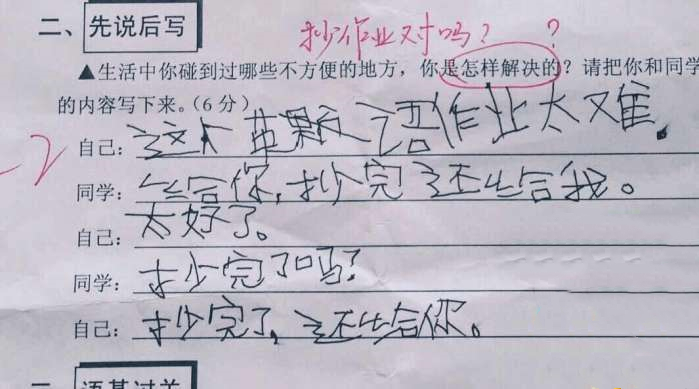 二、先说后写 抄作业对吗？ ？
▲生活中你碰到过哪些不方便的地方，你是怎样解决的？请把你和同学
的内容写下来。（6分）
-2
自己：这个英语作业太难。
同学：给你，抄完还给我。
自己：太好了。
同学：抄完了吗？
自己：抄完了，还给你。